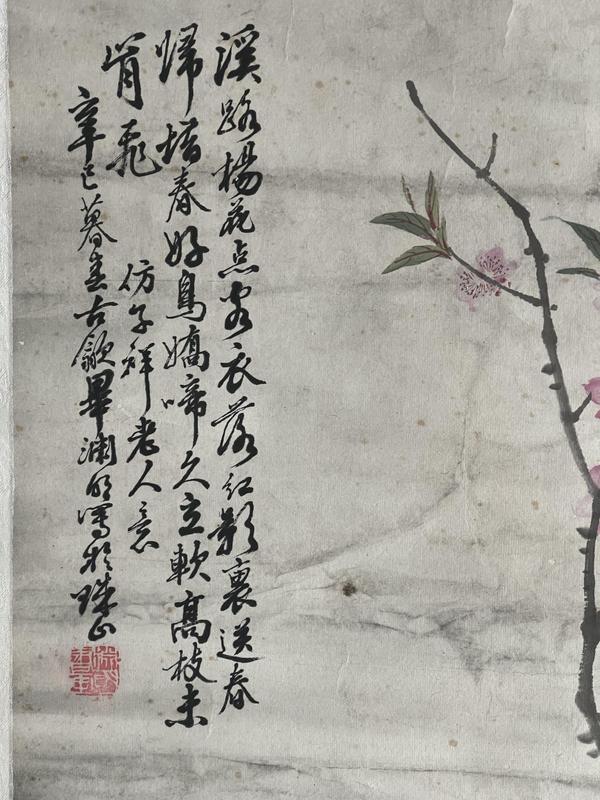 溪路楊花点客衣落红影裏送春
歸 春好鳥嬌啼久立軟高枝未
肯飛
仿子祥老人意
辛巳暮春古歙畢淵明寫於珠山